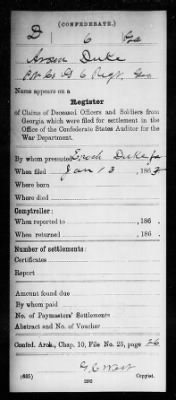 (CONFEDERATE.)
D 6 Ga
Duke
Co D 6 Regt. Geo
Name appears on a
Register
of Claims of Deceased Officers and Soldiers from
Georgia which were filed for settlement in the
Office of the Confederate States Auditor for the
War Department.
By whom presented Enoch Duke fa
When filed Jan 13, 1863
Where born
Where died
Comptroller:
When reported to , 186 .
When returned , 186 .
Number of settlements:
Certificates
Report
Amount found due
By whom paid
No. of Paymasters' Settlements
Abstract and No. of Voucher
Confed. Arch., Chap. 10, File No. 25, page 26
G. C. West
(635) Copyist.